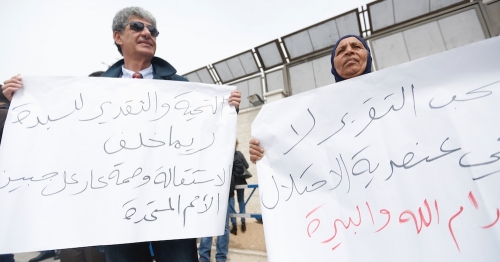 التحية والتقدير للسيدة
ريما خلف
الاستقالة وصمة عار على جبين
الأمم المتحدة
التقرير لا
عنصرية الاحتلال
رام الله والبيرة